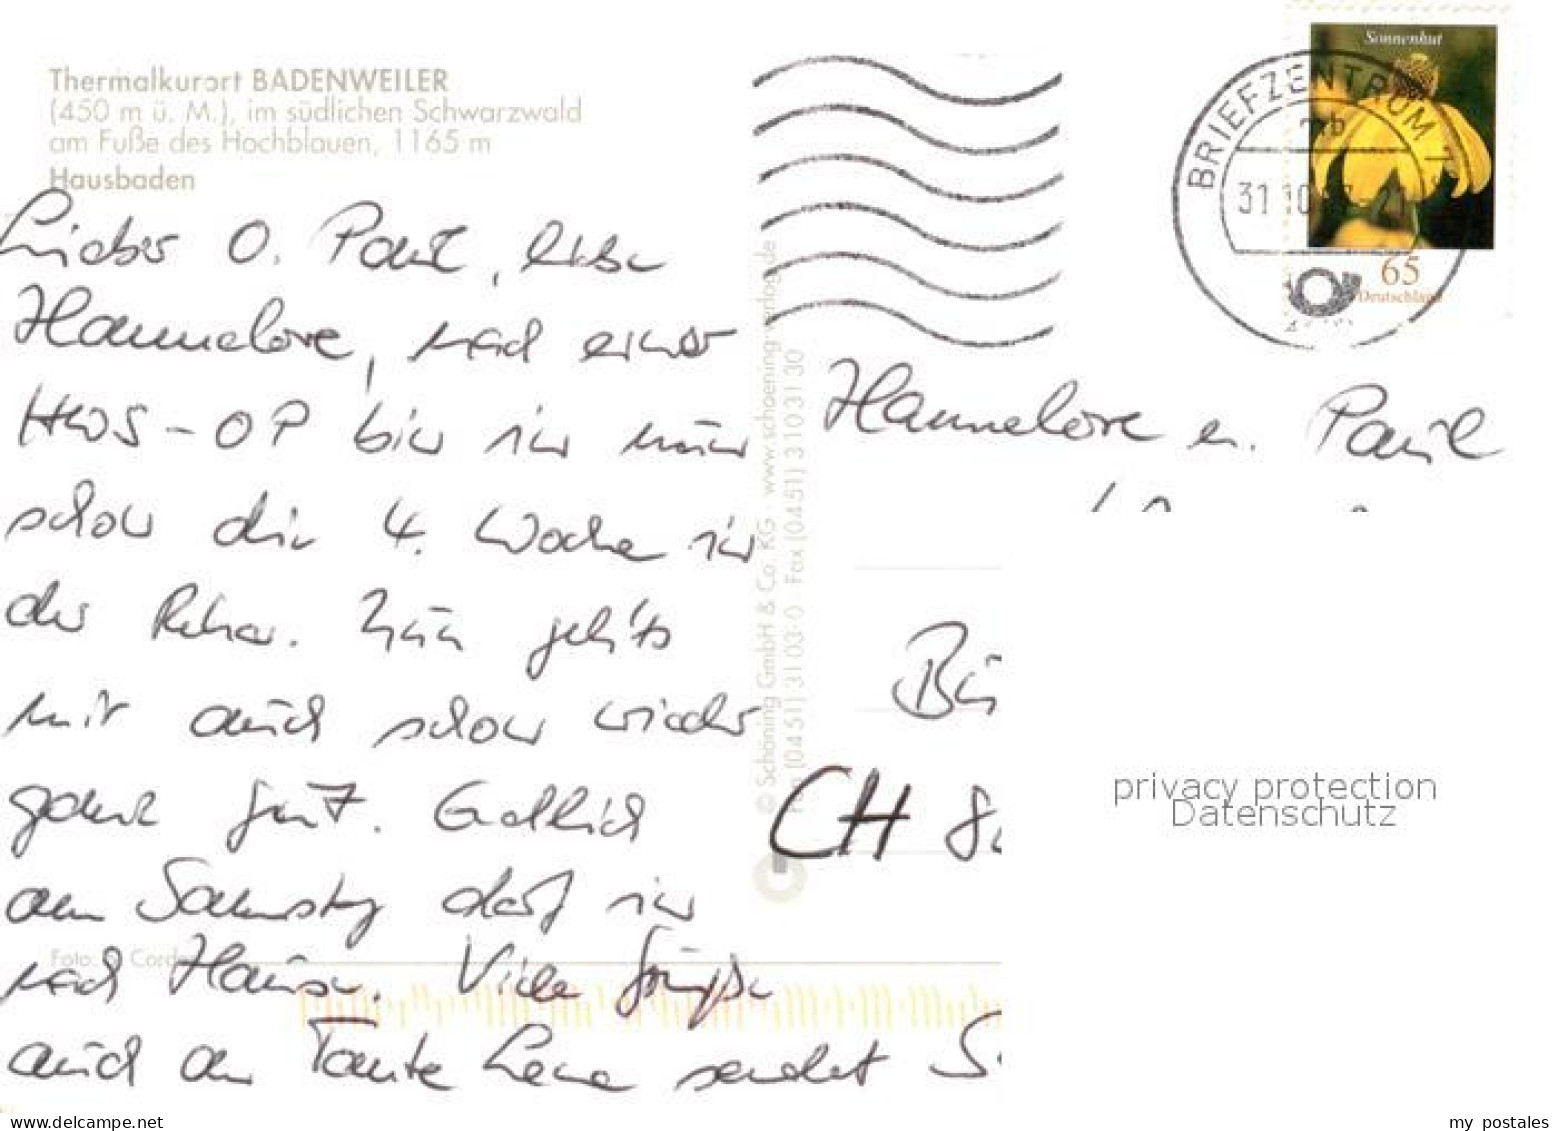 Thermalkurort BADENWEILER
(450 m ü. M.), im südlichen Schwarzwald
am Fuße des Hochblauen, 1165 m
Hausbaden
Lieber O. Paul, liebe
Hannelore, nach einer
HWS-OP bin ich nun
schon die 4. Woche in
der Reha. Nun geht's
mir auch schon wieder
ganz gut. Endlich
am Samstag darf ich
nach Hause. Viele Grüße
auch an Tante Lene sendet
Foto:
© Schöning GmbH & Co. KG · www.schoening-verlag.de
(0451) 31 03-0 · Fax (0451) 3103130
Sonnenhut
65
Deutschland
BRIEFZENTRUM
31.10
Hannelore u. Paul
Bü
CH 8
privacy protection
Datenschutz
delcampe.net
my_postales